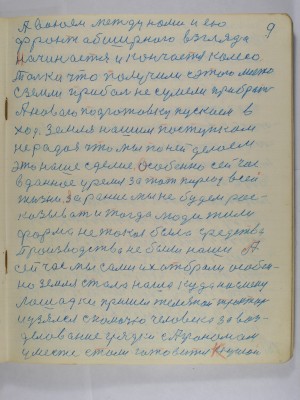 9
А вообщем между нами и его
фронт обширнова взгляда
начинается и кончается колесо
Толка что получили с этого мето
с земли прибол не сумели прибрать
А нового подготовку пускаем в
ход. Земля нашим поступкам
не рада это мы по ней делаем
это наше сделие. Особенно сейчас
в данное время за тот период всей
жизни. За ранше мы не будем рас-
називать и тогда люди жили
форма не такая была средства
производства не были наши А
сейчас мы сами их отобрали особен-
но земля стала наша куда на смену
лошадки пришел железная трактор
и взялся с помощю человека за воз-
делование гряди с Агрономам
уместе стали готовится